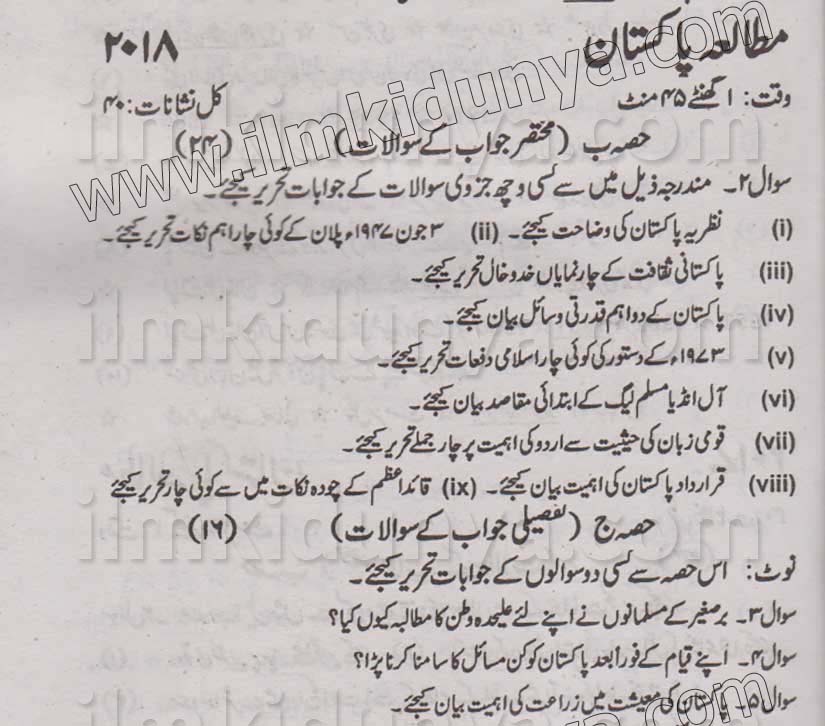 مطالعہ پاکستان ۲۰۱۸
وقت: ۱ گھنٹے ۴۵ منٹ کل نشانات: ۴۰
حصہ ب (مختصر جواب کے سوالات) (۲۴)
سوال ۲۔ مندرجہ ذیل میں سے کسی چھ جزوی سوالات کے جوابات تحریر کیجئے۔
(i) نظریہ پاکستان کی وضاحت کیجئے۔ (ii) ۳ جون ۱۹۴۷ء پلان کے کوئی چار اہم نکات تحریر کیجئے۔
(iii) پاکستانی ثقافت کے چار نمایاں خدوخال تحریر کیجئے۔
(iv) پاکستان کے دو اہم قدرتی وسائل بیان کیجئے۔
(v) ۱۹۷۳ء کے دستور کی کوئی چار اسلامی دفعات تحریر کیجئے۔
(vi) آل انڈیا مسلم لیگ کے ابتدائی مقاصد بیان کیجئے۔
(vii) قومی زبان کی حیثیت سے اردو کی اہمیت پر چار جملے تحریر کیجئے۔
(viii) قرارداد پاکستان کی اہمیت بیان کیجئے۔ (ix) قائداعظم کے چودہ نکات میں سے کوئی چار تحریر کیجئے
حصہ ج (تفصیلی جواب کے سوالات) (۱۶)
نوٹ: اس حصہ سے کسی دو سوالوں کے جوابات تحریر کیجئے۔
سوال ۳۔ برصغیر کے مسلمانوں نے اپنے لئے علیحدہ وطن کا مطالبہ کیوں کیا؟
سوال ۴۔ اپنے قیام کے فوراً بعد پاکستان کو کن مسائل کا سامنا کرنا پڑا؟
سوال ۵۔ پاکستان کی معیشت میں زراعت کی اہمیت بیان کیجئے۔
www.ilmkidunya.com
ilmkidunya.com
ilmkidunya.com
ilmkidunya.com
ilmkidunya.com